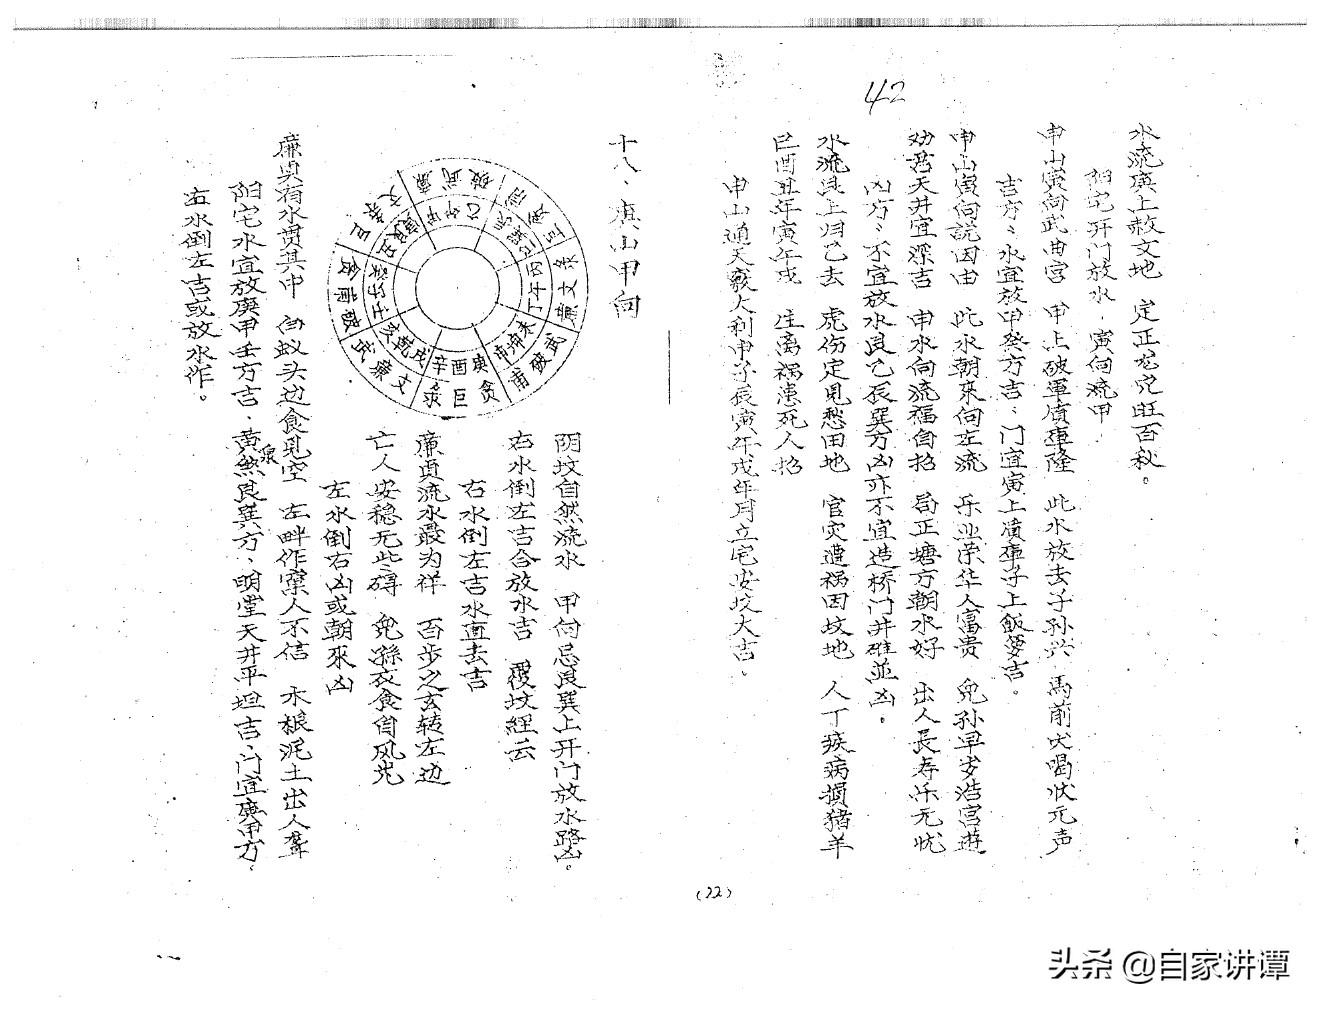 42
水流庚上敖文地 定正龙完旺百秋。
阳宅开门放水，寅向流甲
申山寅向武曲宫 甲上破軍庙隆 此水放去子孙兴 馬前吆喝状元声
吉方：水宜放甲癸方吉、门宜寅上子上飯箩吉。
申山寅向説因由 此水朝來向左流 乐业荣华人富贵 児孙早岁浩宫遊
劝君天井宜深吉 申水向流福自招 局正塘方朝水好 出人長寿乐无忧
凶方：不宜放水艮乙辰巽方凶亦不宜造桥门井碓並凶。
水流艮上归乙去 虎伤定見愁田地 官灾遭祸因坟地 人丁疾病損猪羊
巳酉丑年寅午戌 生离祸患死人招
申山通天竅大利申子辰寅午戌年月立宅安坟大吉。
(22)
十八、庚山甲向
阴坟自然流水 甲向忌艮巽上开门放水路凶。
右水倒左吉合放水吉 覆坟經云
右水倒左吉水直去吉
廉貞流水最为祥 百步之玄转左边
亡人安穏无些碍 児孫衣食自风光
左水倒右凶或朝來凶
廉貞有水贯其中 白蚁头边食見空 左畔作窠人不信 木根泥土出人聾
阳宅水宜放庚甲壬方吉、黄泉煞艮巽方、明堂天井平坦吉、门宜庚甲方、
右水倒左吉或放水作。
头条 @自家讲谭